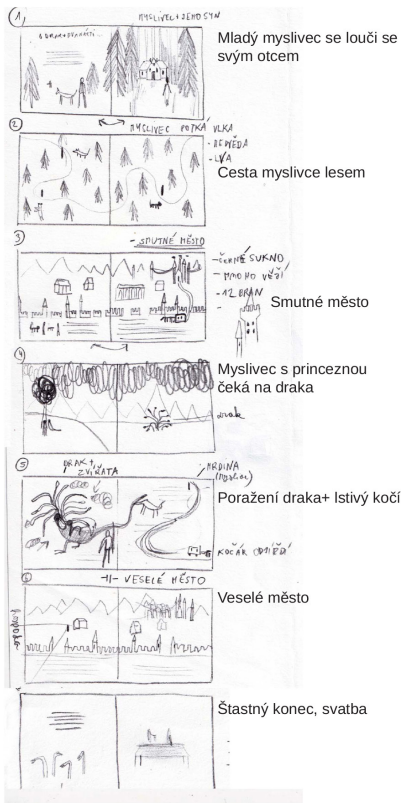 1,
MYSLIVEC + JEHO SYN
O DRAKU DVANÁCTI...
Mladý myslivec se louči se
svým otcem
2
MYSLIVEC POTKÁ VLKA
- MEDVĚDA
- LVA
Cesta myslivce lesem
3
- SMUTNÉ MĚSTO
- ČERNÉ SUKNO
- MNOHO VĚŽÍ
- 12 BRAN
Smutné město
4
Myslivec s princeznou
čeká na draka
drak
5
DRAK +
ZVÍŘATA
HRDINA
(myslivec)
Poražení draka+ lstivý kočí
KOČÁR ODJÍŽDÍ
6
-II- VESELÉ MĚSTO
Veselé město
Štastný konec, svatba